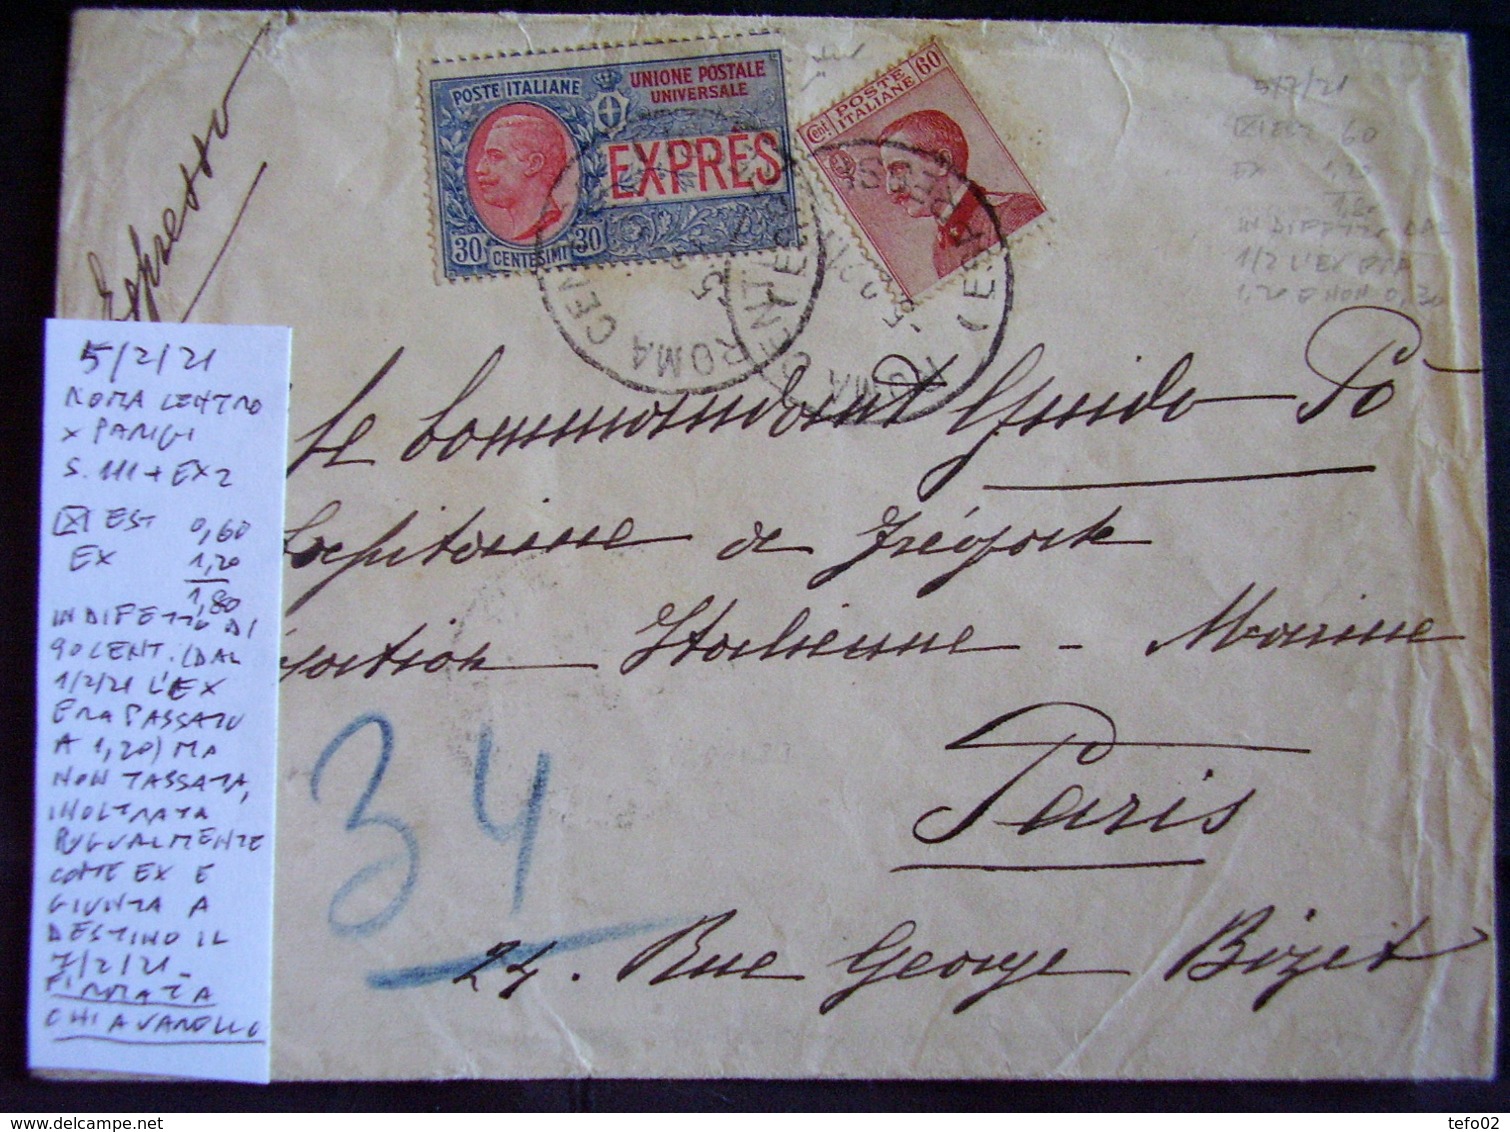 Espresso
POSTE ITALIANE
UNIONE POSTALE
UNIVERSALE
EXPRÈS
30 CENTESIMI 30
POSTE
ITALIANE
Cent 60
ROMA CEN
ROMA CENT
(ESPRESSI)
5/2/21
EST 60
EX 1,20
1,80
IN DIFETTO DAL
1/2 L'EX ERA
1,20 E NON 0,30
5/2/21
ROMA CENTRO
X PARIGI
S. 111 + EX2
EST 0,60
EX 1,20
1,80
IN DIFETTO DI
90 CENT. (DAL
1/2/21 L'EX
ERA PASSATO
A 1,20) MA
NON TASSATA,
INOLTRATA
UGUALMENTE
COME EX E
GIUNTA A
DESTINO IL
7/2/21_
FIRMATA
CHIAVARELLO
Le Commandant Guido Pò
Capitaine de Frégate
Italienne - Marine
Paris
34
24. Rue George Bizet
tefo02